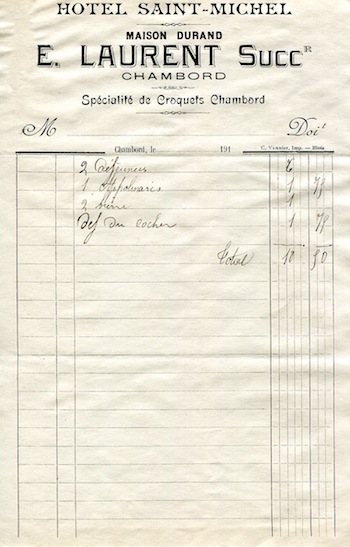 HOTEL SAINT-MICHEL
MAISON DURAND
E. LAURENT SUCCR
CHAMBORD
Spécialité de Croquets Chambord
M Doit
Chambord, le 191 C. Vannier, Imp. — Blois
2 déjeuners 6
1 Appolinaris 1 75
2 bière 1
dej du cocher 1 75
Total 10 50